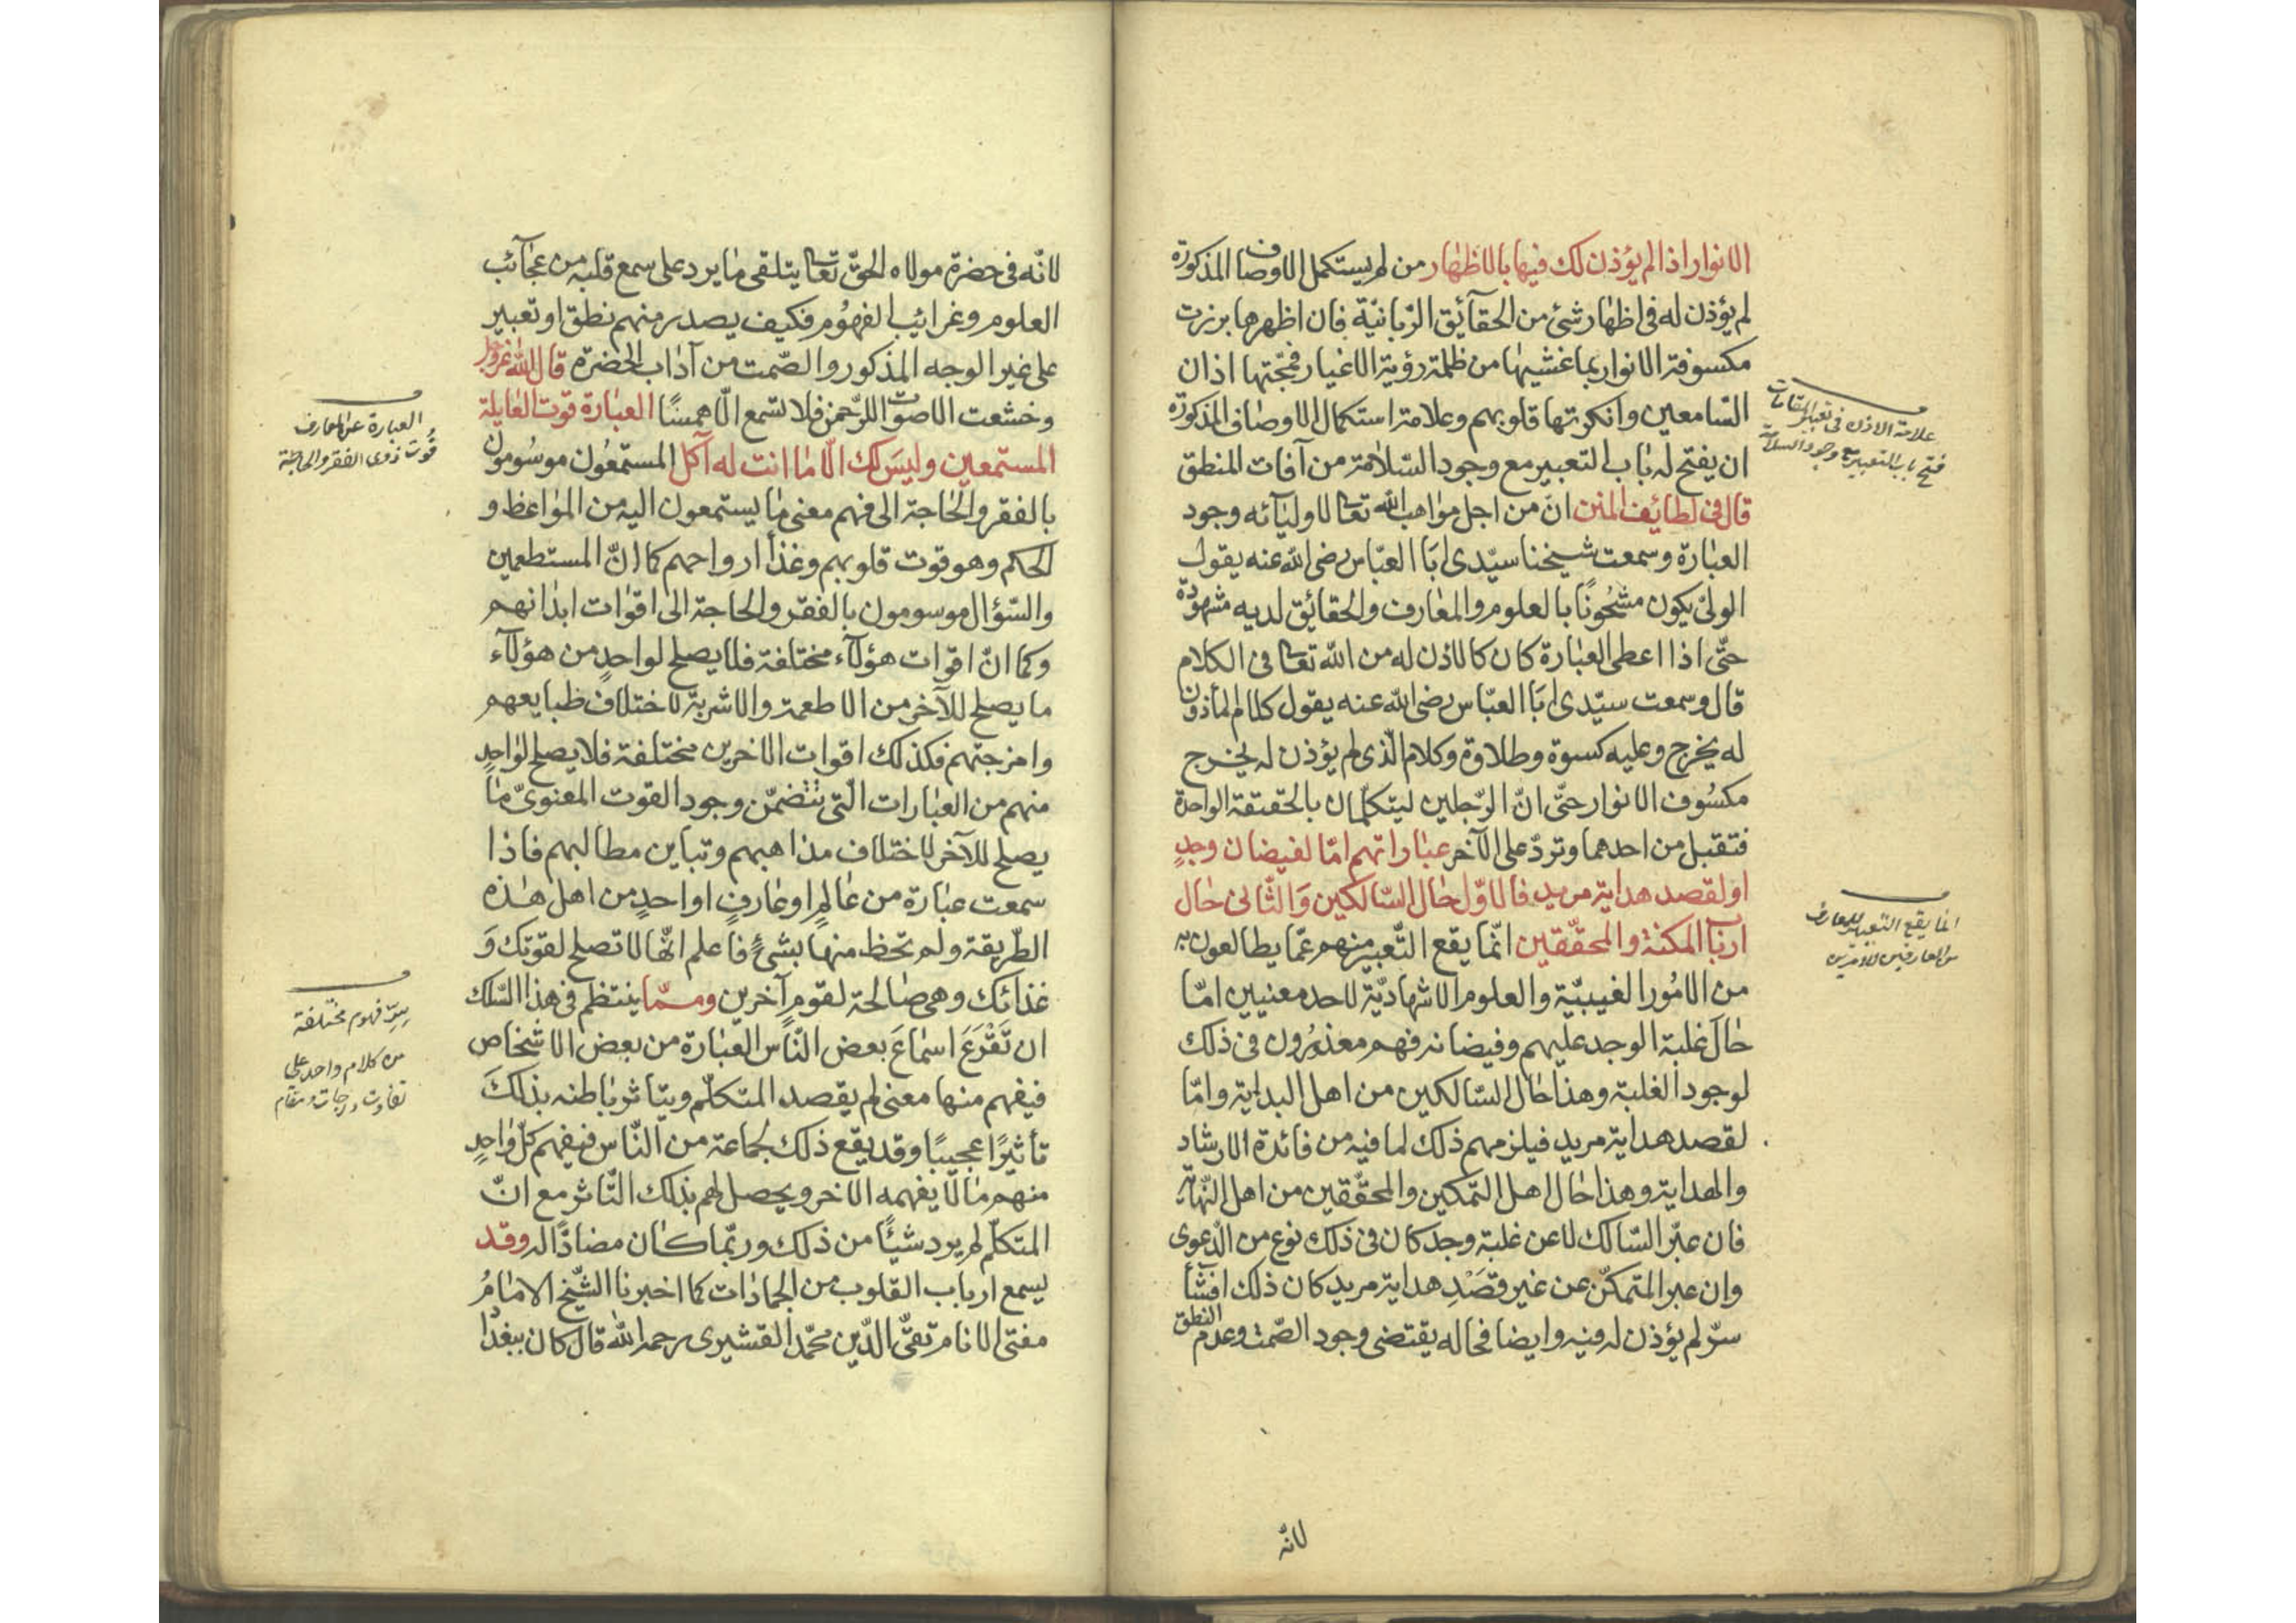 الانوار اذا لم يؤذن لك فيها بالاظهار من لم يستكمل الاوصاف المذكورة
لم يؤذن له فى اظهار شئ من الحقآئق الرّبانيّة فان اظهرها برزت
مكسوفة الانوار بما غشيها من ظلمة رؤية الاغيار فمجّتها اذان
السّامعين وانكرتها قلوبهم وعلامة استكمال الاوصاف المذكورة
ان يفتح له باب التعبير مع وجود السّلامة من آفات المنطق
قال فى لطائف المنن انّ من اجل مواهب الله تعالى لاوليائه وجود
العبارة وسمعت شيخنا سيّدى ابَا العبّاس رضى الله عنه يقول
الولىّ يكون مشحُونًا بالعلوم والمعارف والحقائق لديه مشهودة
حتّى اذا اعطى العبارة كان كالاذن له من الله تعالى فى الكلام
قال وسمعت سيّدى ابَا العبّاس رضى الله عنه يقول كلام المأذون
له يخرج وعليه كسوة وطلاوة وكلام الّذى لم يؤذن له يخرج
مكسُوف الانوار حتّى انّ الرّجلين ليتكلّمان بالحقيقة الواحدة
فتقبل من احدهما وتردّ على الآخر عباراتهم امّا لفيضان وجدٍ
او لقصد هداية مريد فالاوّل حال السّالكين وَالثّانى حَال
اربَاب المكنة والمحقّقين انّما يقع التّعبير منهم عمّا يطالعون به
من الامُور الغيبيّة والعلوم الاشهاديّة لاحد معنيين امّا
حَال غلبة الوجد عليهم وفيضانه فهم معذورُون فى ذلك
لوجود الغلبة وهذا حَال السّالكين من اهل البداية وامّا
لقصد هداية مريد فيلزمهم ذلك لما فيه من فائدة الارشاد
والهداية وهذا حَال اهل التّمكين والمحقّقين من اهل النّهاية
فان عبّر السّالك لا عن غلبة وجد كان فى ذلك نوع من الدّعوى
وان عبر المتمكّن عن غير قصَدِ هداية مريد كان ذلك افشَأ
سرّ لم يؤذن له فيه وايضا فحاله يقتضى وجود الصّمت وعدم النطق
لانّه
علامة الاذن فى تعبير المقامات
فتح باب التعبير مع وجود السلامة
انما يقع التعبير للمعارف
من العارفين لامرين
لانّه فى حضرة مولاه الحقّ تعالى يتلقى مَا يرد على سمع قلبه من عجآئب
العلوم وغرائب الفهُوم فكيف يصدر منهم نطق او تعبير
على غير الوجه المذكور والصّمت من آداب الحضرة قال الله عزّ وجل
وخشعت الاصوات للرّحمن فلا تسمع الّا همسًا العبَارة قوت العَايلة
المستمعين وليسَ لك الّا مَا انت له آكل المستمعُون موسُومون
بالفقر والحَاجة الى فهم معنى مَا يستمعون اليه من المواعظ و
الحكم وهو قوت قلوبهم وغذأ ارواحهم كما انّ المستطعمين
والسّؤال موسومون بالفقر والحاجة الى اقوات ابدانهم
وكما انّ اقوات هؤلآء مختلفة فلا يصلح لواحدٍ من هؤلآء
ما يصلح للآخر من الاطعمة والاشربة لاختلاف طبايعهم
وامزجتهم فكذلك اقوات الاخرين مختلفة فلا يصلح لواحدٍ
منهم من العبارات الّتى تتضمّن وجود القوت المعنوىّ مَا
يصلح للآخر لاختلاف مذاهبهم وتباين مطالبهم فاذا
سمعت عبَارة من عَالمٍ او عَارفٍ او احدٍ من اهل هذه
الطّريقة ولم تحظ منها بشئٍ فاعلم انّها لا تصلح لقوتك وَ
غذائك وهى صَالحة لقومٍ آخرين وممّا ينتظم فى هذا السّلك
ان تَقْرَعَ اسمَاعَ بعض النّاس العبَارة من بعض الاشخاص
فيفهم منها معنى لم يقصده المتكلّم ويتاثر باطنه بذلكَ
تأثيرًا عجيبًا وقد يقع ذلك لجماعة من النّاس فيفهم كلّ واحدٍ
منهم مَا لا يفهمه الاخر ويحصل لهم بذلك التّاثر مع انّ
المتكلّم لم يرد شيئًا من ذلك وربّما كان مضادًّا له وقد
يسمع ارباب القلوب من الجمادات كما اخبرنا الشّيخ الامامُ
مفتى الانام تقىُّ الدّين محمّد القشيرى رحمه الله قال كان ببغدا
العبارة عن المعارف
قُوت ذوى الفقر والحاجة
فهوم مختلفة
من كلام واحد على
تفاوت درجات ومقام